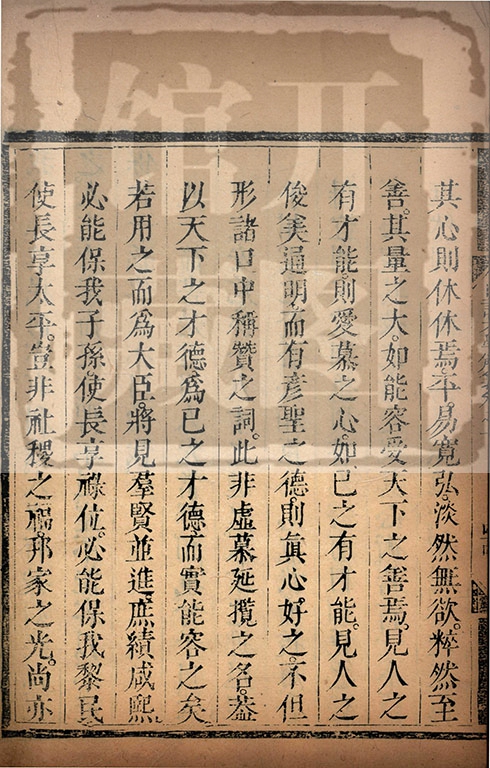 其心則休休焉。平易寬弘。淡然無欲粹然至
善。其量之大。如能容受天下之善焉。見人之
有才能。則愛慕之心。如己之有才能。見人之
俊美通明而有彥聖之德。則眞心好之。不但
形諸口中稱贊之詞。此非虛慕延攬之名。葢
以天下之才德爲已之才德。而實能容之矣
若用之而爲大臣。將見羣賢並進。庶績咸熙
必能保我子孫。使長享祿位。必能保我黎民
使長享太平。豈非社稷之福。邦家之光。尚亦